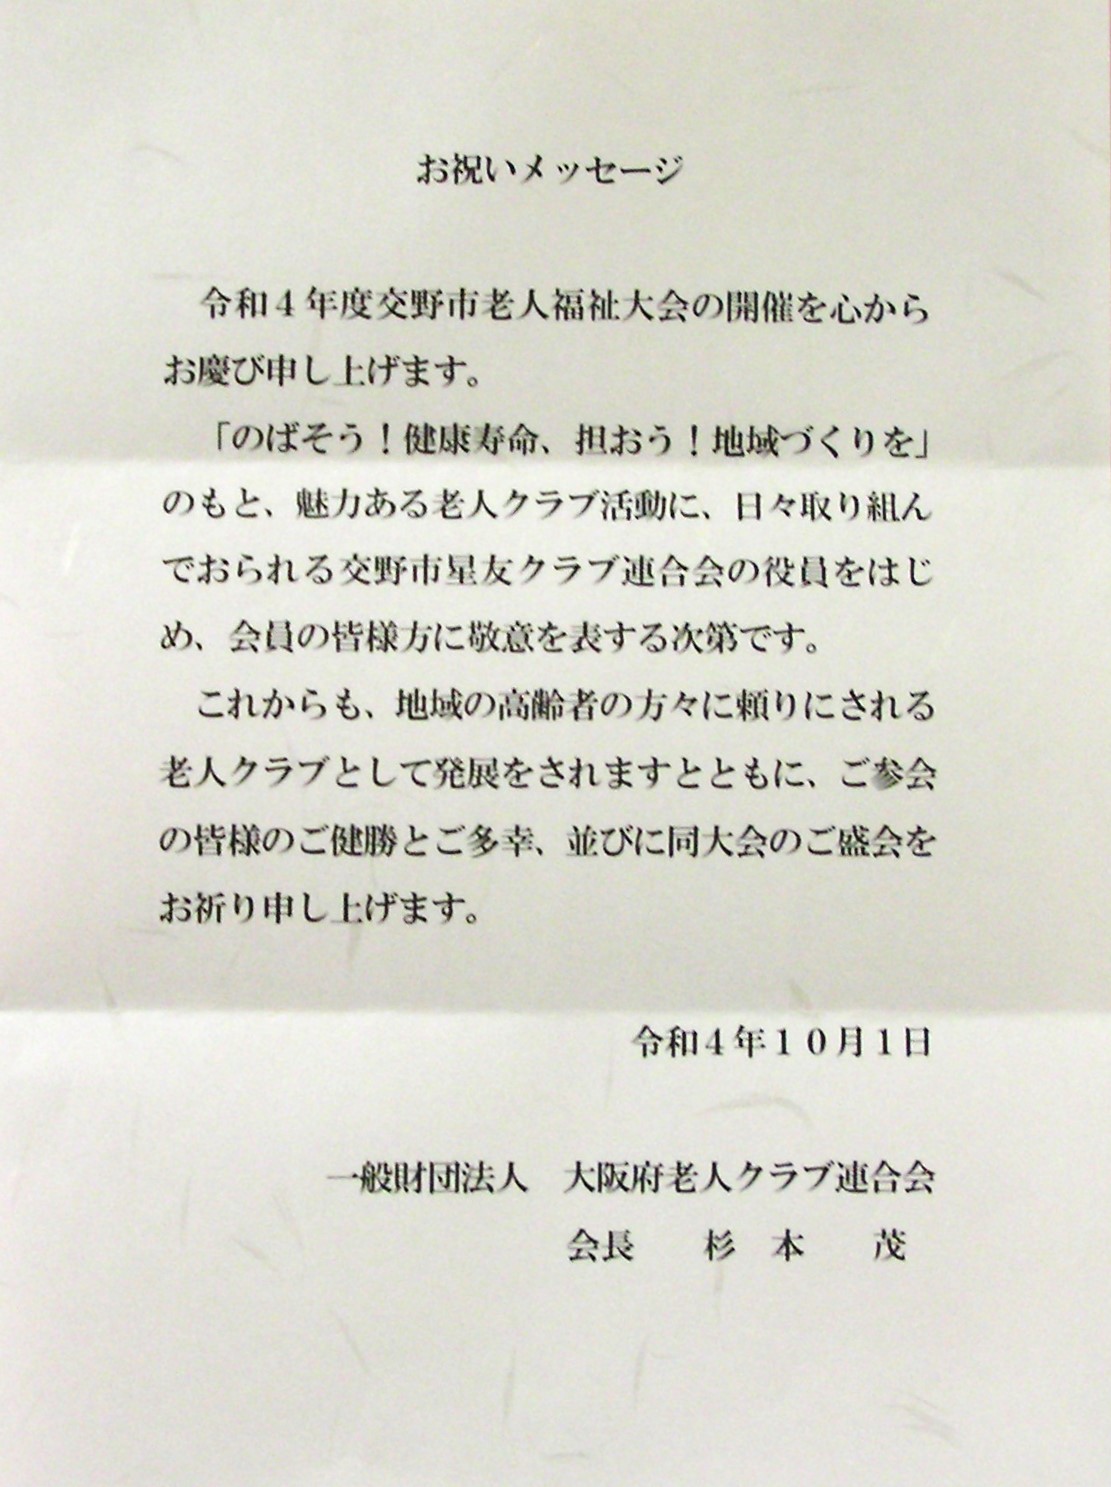 お祝いメッセージ
令和４年度交野市老人福祉大会の開催を心から
お慶び申し上げます。
「のばそう！健康寿命、担おう！地域づくりを」
のもと、魅力ある老人クラブ活動に、日々取り組ん
でおられる交野市星友クラブ連合会の役員をはじ
め、会員の皆様方に敬意を表する次第です。
これからも、地域の高齢者の方々に頼りにされる
老人クラブとして発展をされますとともに、ご参会
の皆様のご健勝とご多幸、並びに同大会のご盛会を
お祈り申し上げます。
令和４年１０月１日
一般財団法人　大阪府老人クラブ連合会
会長　　杉　本　　茂